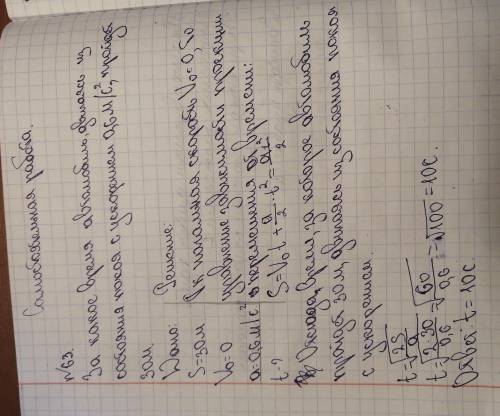 Самостоятельная работа.
№63.
За какое время автомобиль, двигаясь из
состояния покоя с ускорением 0,6 м/с², пройдёт
30м.
Дано: Решение:
S=30м Т.к начальная скорость V₀=0, то
V₀=0 уравнение зависимости проекции
a=0,6м/с² перемещения от времени:
t-? S=V₀t+a/2·t²=at²/2
Отсюда время, за которое автомобиль
пройдёт 30м, двигаясь из состояния покоя
с ускорением
t=√2S/a
t=√2·30/0,6=√60/0,6=√100=10с.
Ответ: t=10с